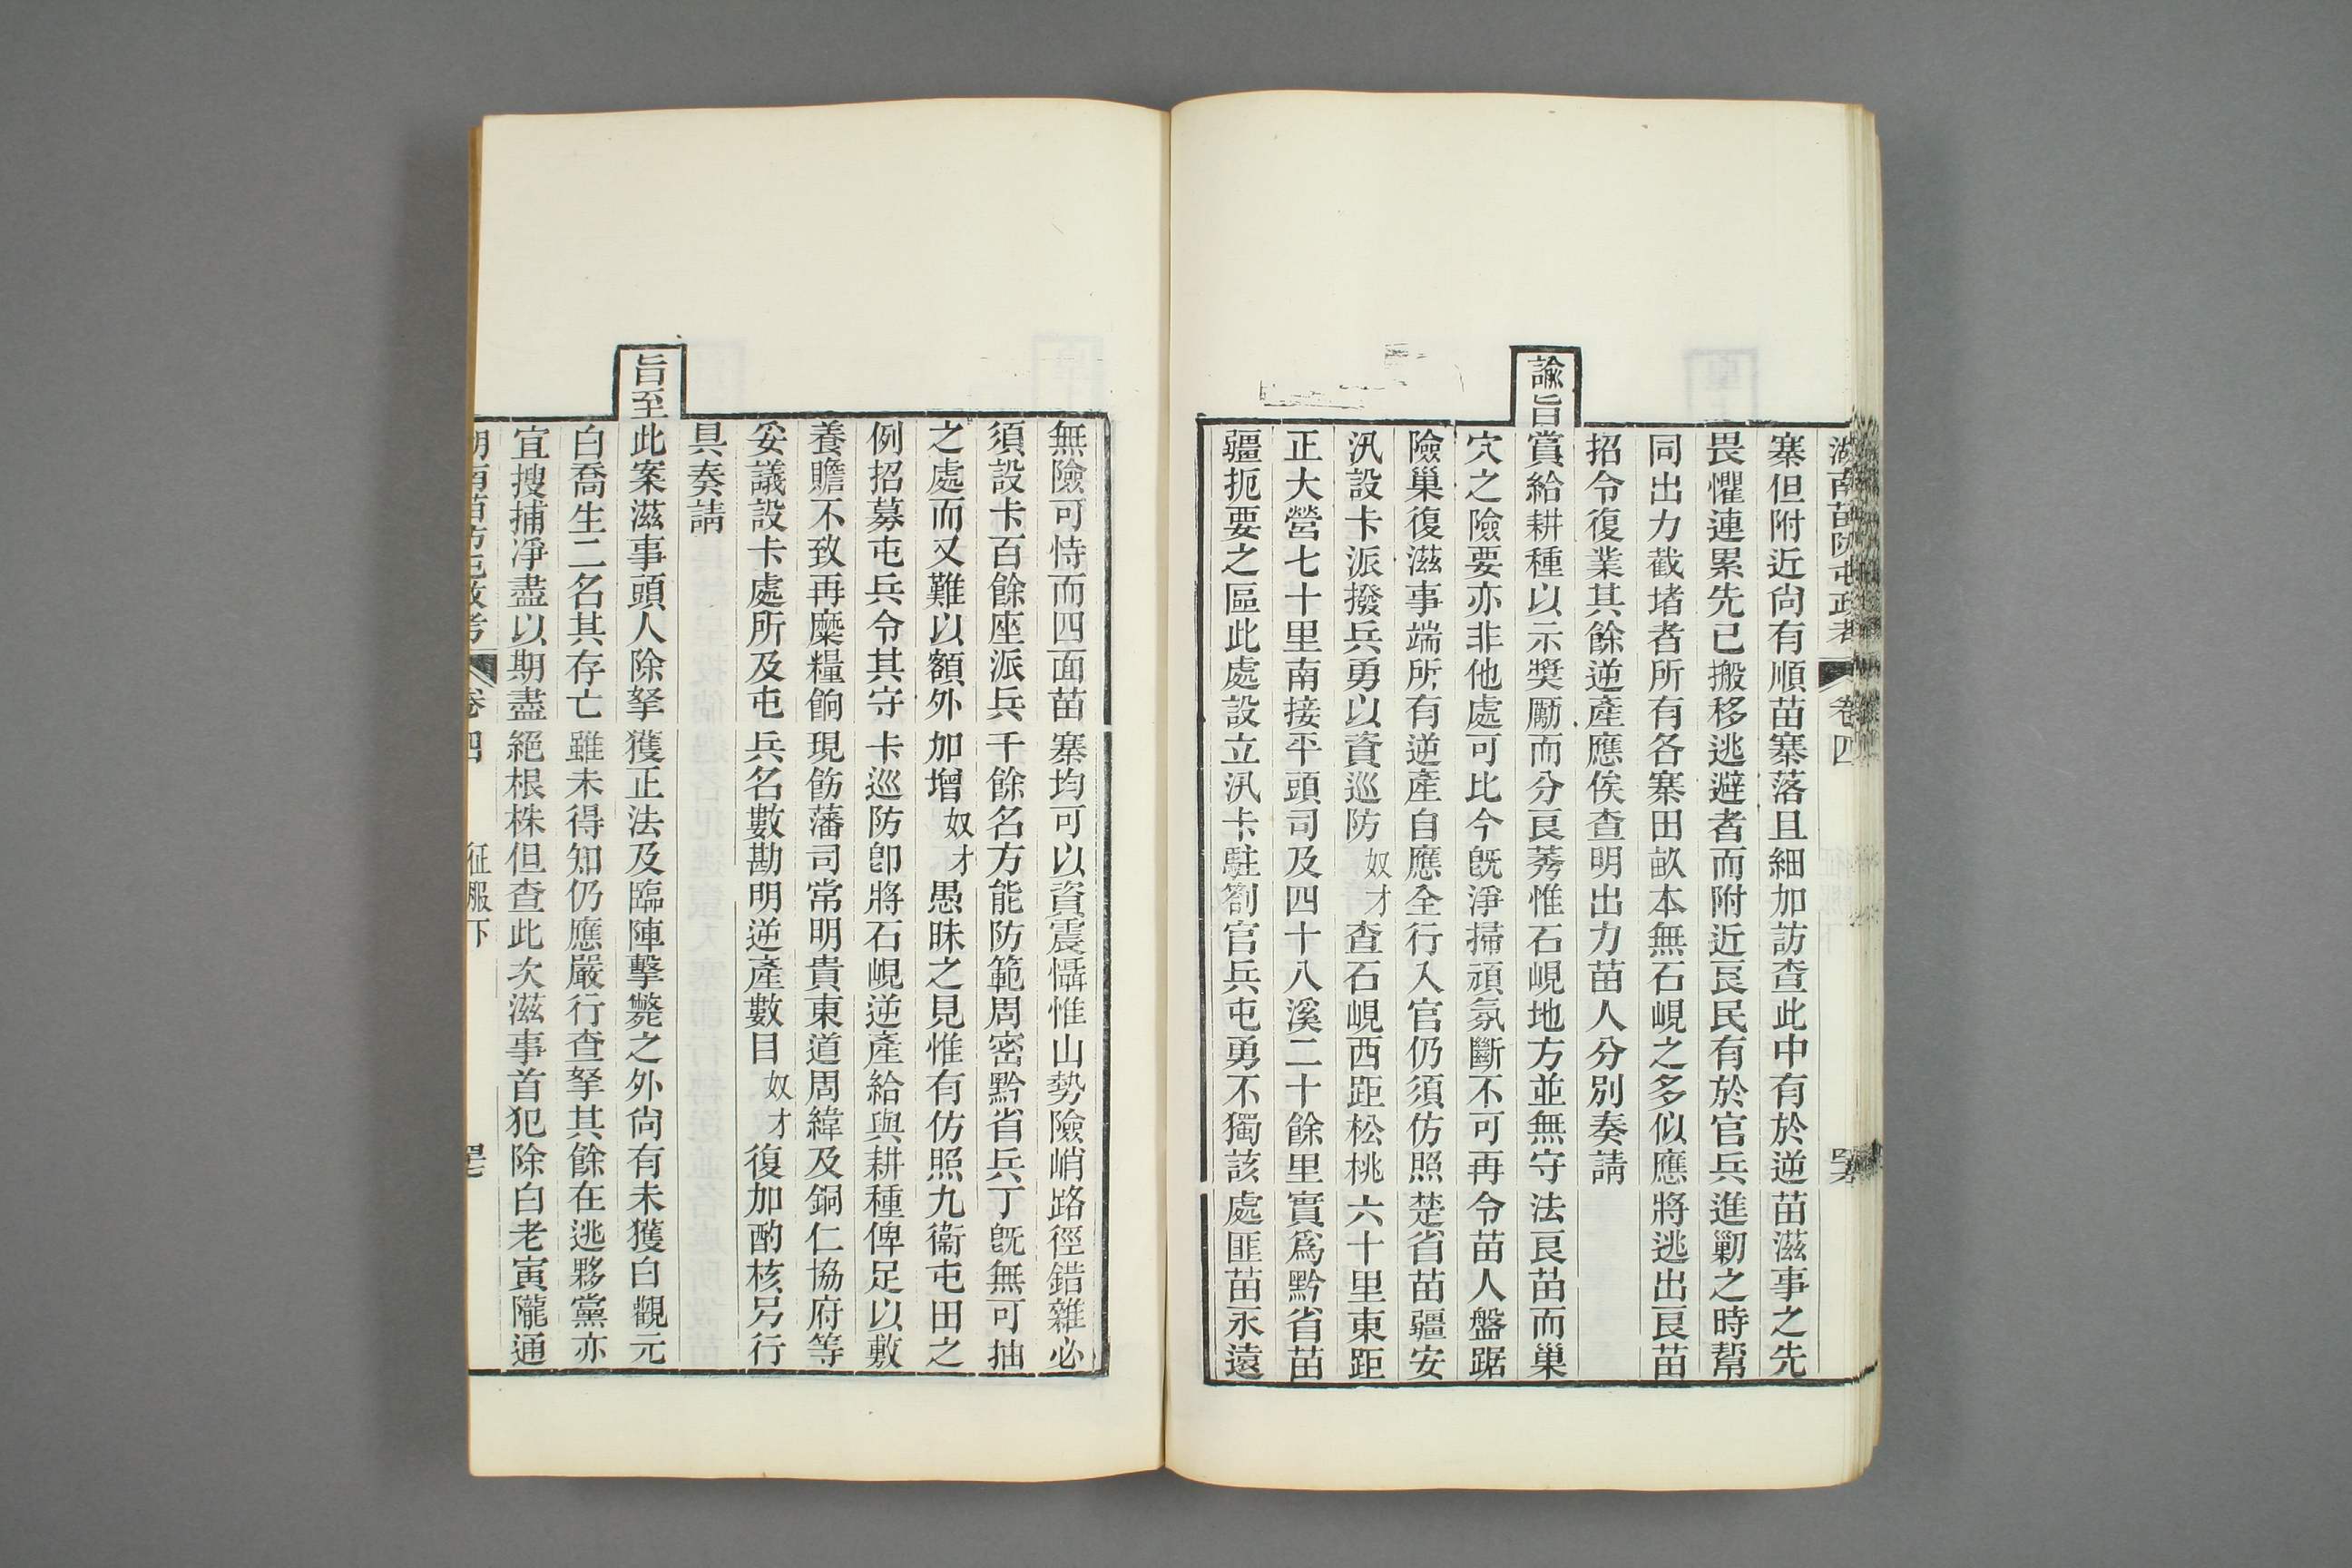 湖南苗防屯政考 卷四
寨但附近尙有順苗寨落且細加訪查此中有於逆苗滋事之先
畏懼連累先已搬移逃避者而附近良民有於官兵進勦之時幫
同出力截堵者所有各寨田畝本無石峴之多似應將逃出良苗
招令復業其餘逆產應俟查明出力苗人分別奏請
諭旨賞給耕種以示獎勵而分良莠惟石峴地方並無守法良苗而巢
穴之險要亦非他處可比今旣淨掃頑氛斷不可再令苗人盤踞
險巢復滋事端所有逆產自應全行入官仍須仿照楚省苗疆安
汛設卡派撥兵勇以資巡防奴才查石峴西距松桃六十里東距
正大營七十里南接平頭司及四十八溪二十餘里實爲黔省苗
疆扼要之區此處設立汛卡駐劄官兵屯勇不獨該處匪苗永遠
無險可恃而四面苗寨均可以資震懾惟山勢險峭路徑錯雜必
須設卡百餘座派兵千餘名方能防範周密黔省兵丁旣無可抽
之處而又難以額外加增奴才愚昧之見惟有仿照九衞屯田之
例招募屯兵令其守卡巡防卽將石峴逆產給與耕種俾足以敷
養贍不致再糜糧餉現飭藩司常明貴東道周緯及銅仁協府等
妥議設卡處所及屯兵名數勘明逆產數目奴才復加酌核另行
具奏請
旨至此案滋事頭人除拏獲正法及臨陣擊斃之外尙有未獲白觀元
白喬生二名其存亡雖未得知仍應嚴行查拏其餘在逃夥黨亦
宜搜捕淨盡以期盡絕根株但查此次滋事首犯除白老寅隴通
湖南苗防屯政考 卷四 征服下